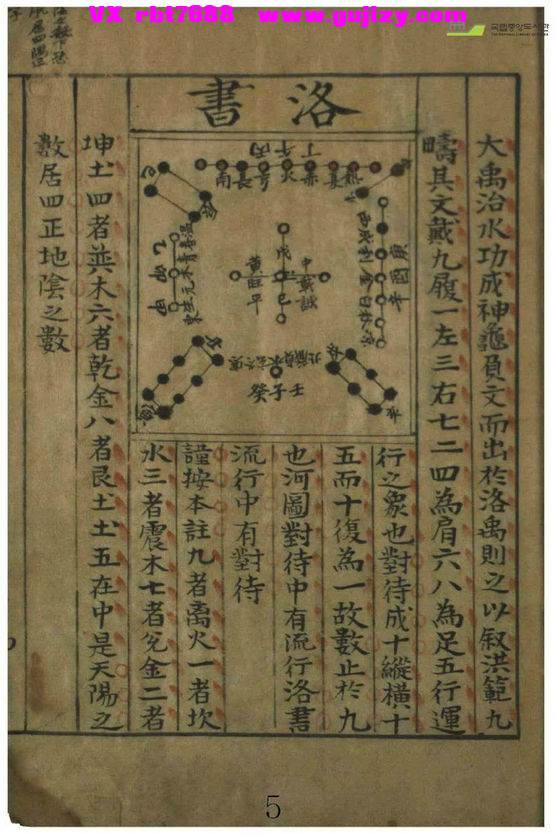 VX rbt7688 www.gujizy.com
國立中央도서관
洛書
大禹治水功成神龜負文而出於洛禹則之以叙洪範九
疇其文戴九履一左三右七二四為肩六八為足五行運
行之象也對待成十縱橫十
五而十復為一故數止於九
也河圖對待中有流行洛書
流行中有對待
謹按本註九者离火一者坎
水三者震木七者兌金二者
坤土四者巽木六者乾金八者艮土土五在中是天陽之
數居四正地陰之數
丁午丙
南長弓火赤夏熱
庚
酉
辛
戊
己
中
黃旺平
乙
卯
甲
溫春青木元生東
癸子壬
5